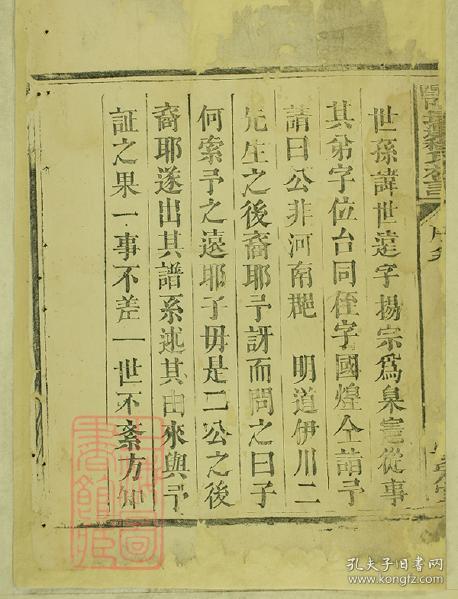 世孫諱世遠字揚宗爲臬憲從事
其弟字位台同侄字國煌仝詣予
請曰公非河南郡 明道伊川二
先生之後裔耶予訝而問之曰子
何索予之遠耶子毋是二公之後
裔耶遂出其譜系述其由來與予
証之果一事不差一世不紊方知
孔夫子旧书网
kongfz.com